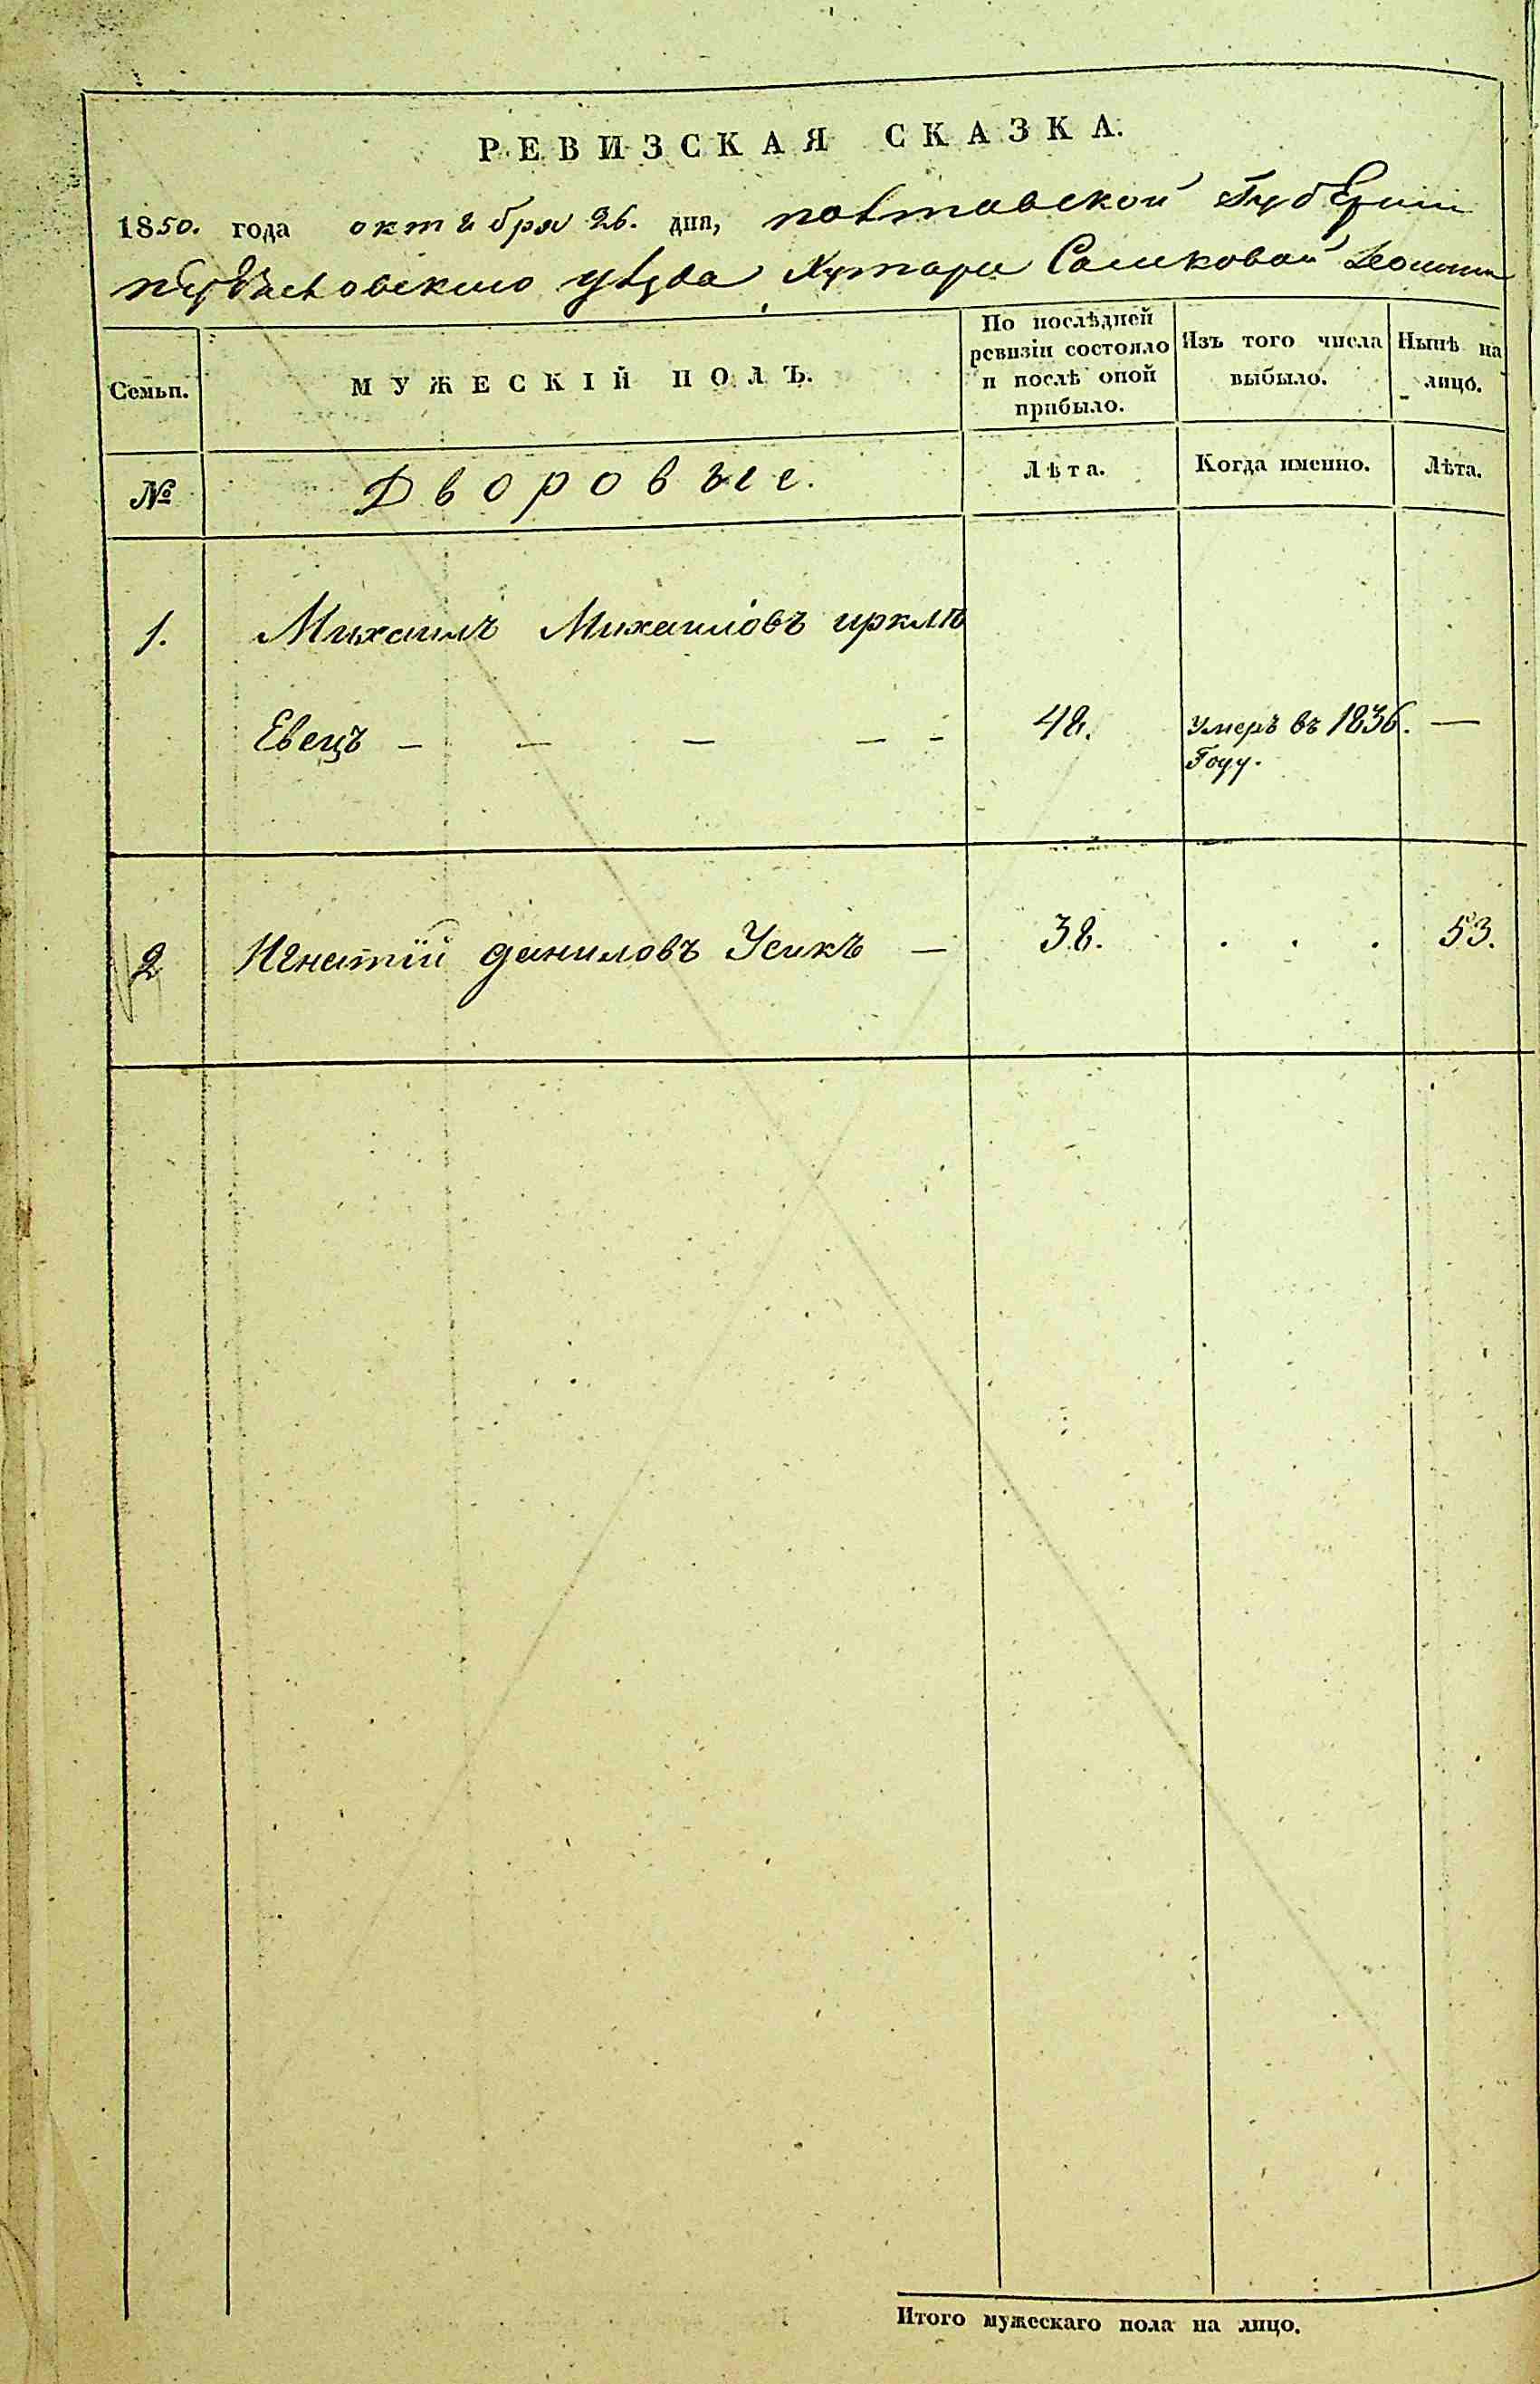 РЕВИЗСКАЯ СКАЗКА.
1850. года октября 26. дня, полтавской Губерніи
уѣзда Хутора
Семьи.
МУЖЕСКІЙ ПОЛЪ.
По послѣдней ревизіи состояло и послѣ оной прибыло.
Изъ того числа выбыло.
Нынѣ на лицо.
№
Дворовые.
Лѣта.
Когда именно.
Лѣта.
1. Михаилъ Михаиловъ иркле
Евецъ — — — — - 48. умеръ въ 1836. —
Году.
2 Игнатій даниловъ Усикъ — 38. . . . 53.
Итого мужескаго пола на лицо.